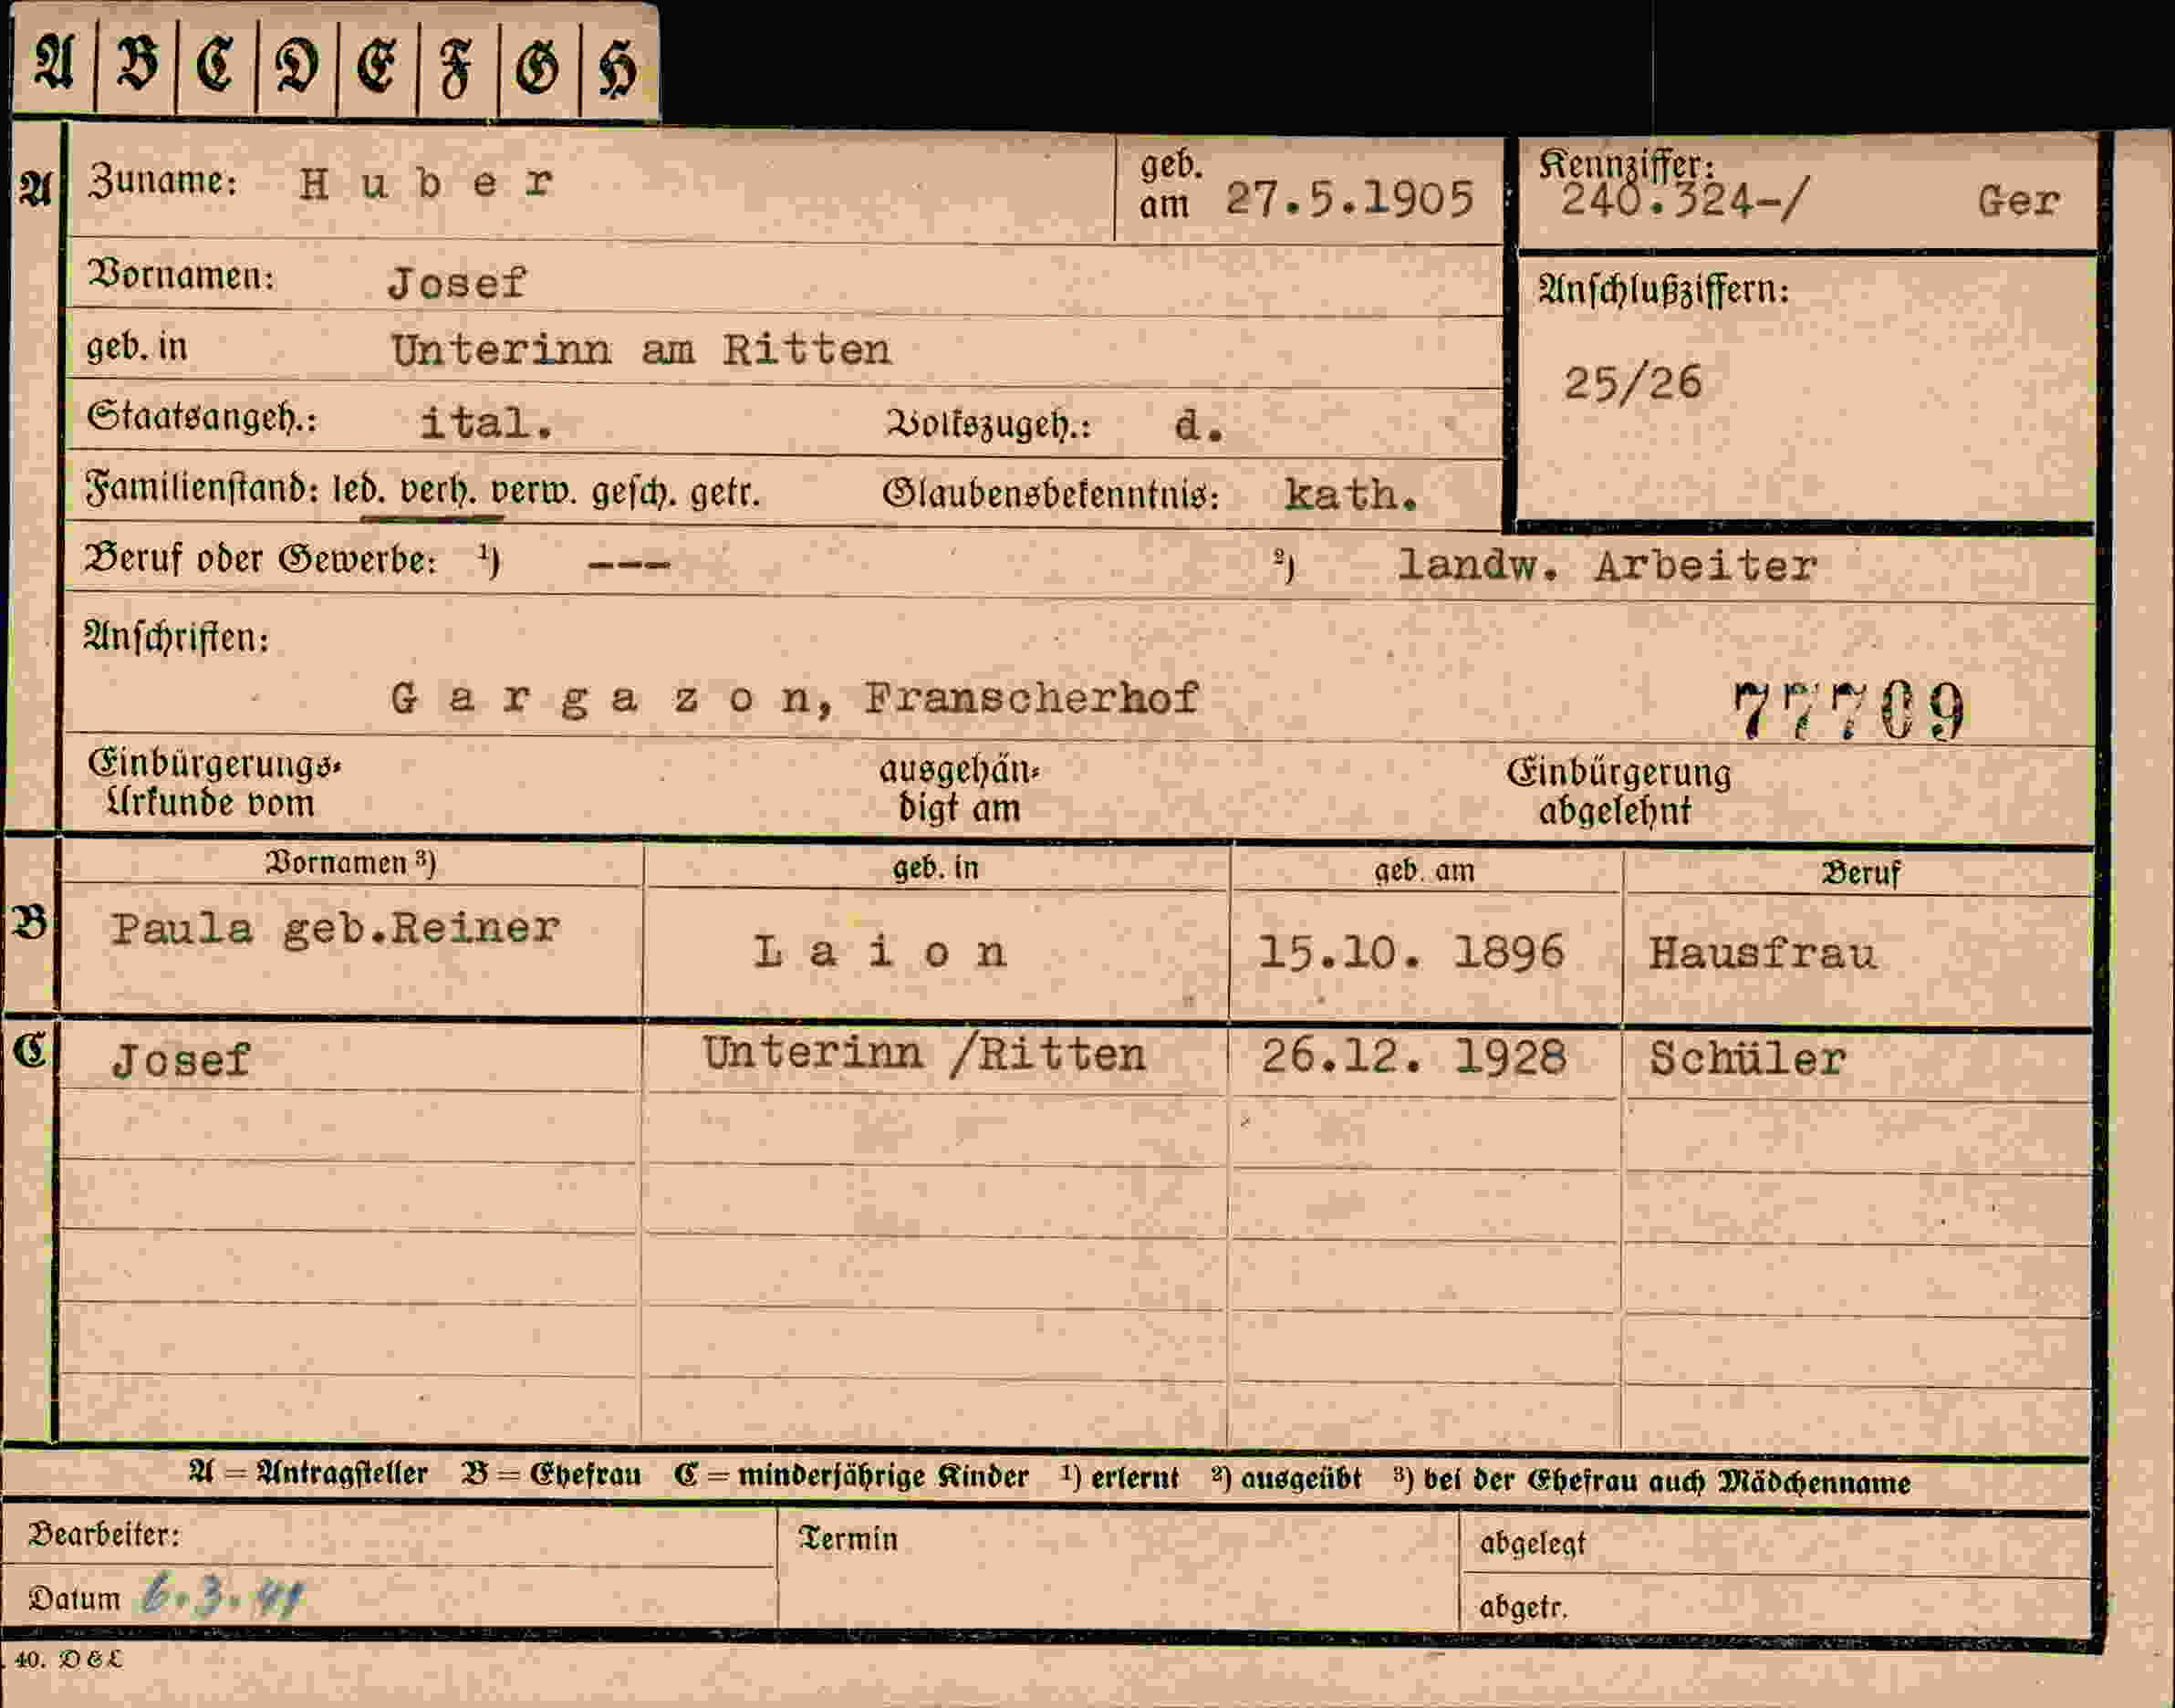 A B C D E F G H
A Zuname: Huber geb. am 27.5.1905 Kennziffer: 240.324-/ Ger
Vornamen: Josef Anschlußziffern:
geb. in Unterinn am Ritten 25/26
Staatsangeh.: ital. Volkszugeh.: d.
Familienstand: led. verh. verw. gesch. getr. Glaubensbekenntnis: kath.
Beruf oder Gewerbe: ¹) --- ²) landw. Arbeiter
Anschriften:
Gargazon, Franscherhof 77709
Einbürgerungs- ausgehän- Einbürgerung
Urkunde vom digt am abgelehnt
Vornamen ³) geb. in geb. am Beruf
B Paula geb.Reiner Laion 15.10. 1896 Hausfrau
C Josef Unterinn /Ritten 26.12. 1928 Schüler
A = Antragsteller B = Ehefrau C = minderjährige Kinder ¹) erlernt ²) ausgeübt ³) bei der Ehefrau auch Mädchenname
Bearbeiter: Termin abgelegt
Datum 6.3.41 abgetr.
40. D&L